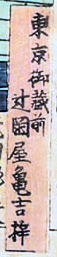 東京御蔵前
辻岡屋亀吉梓